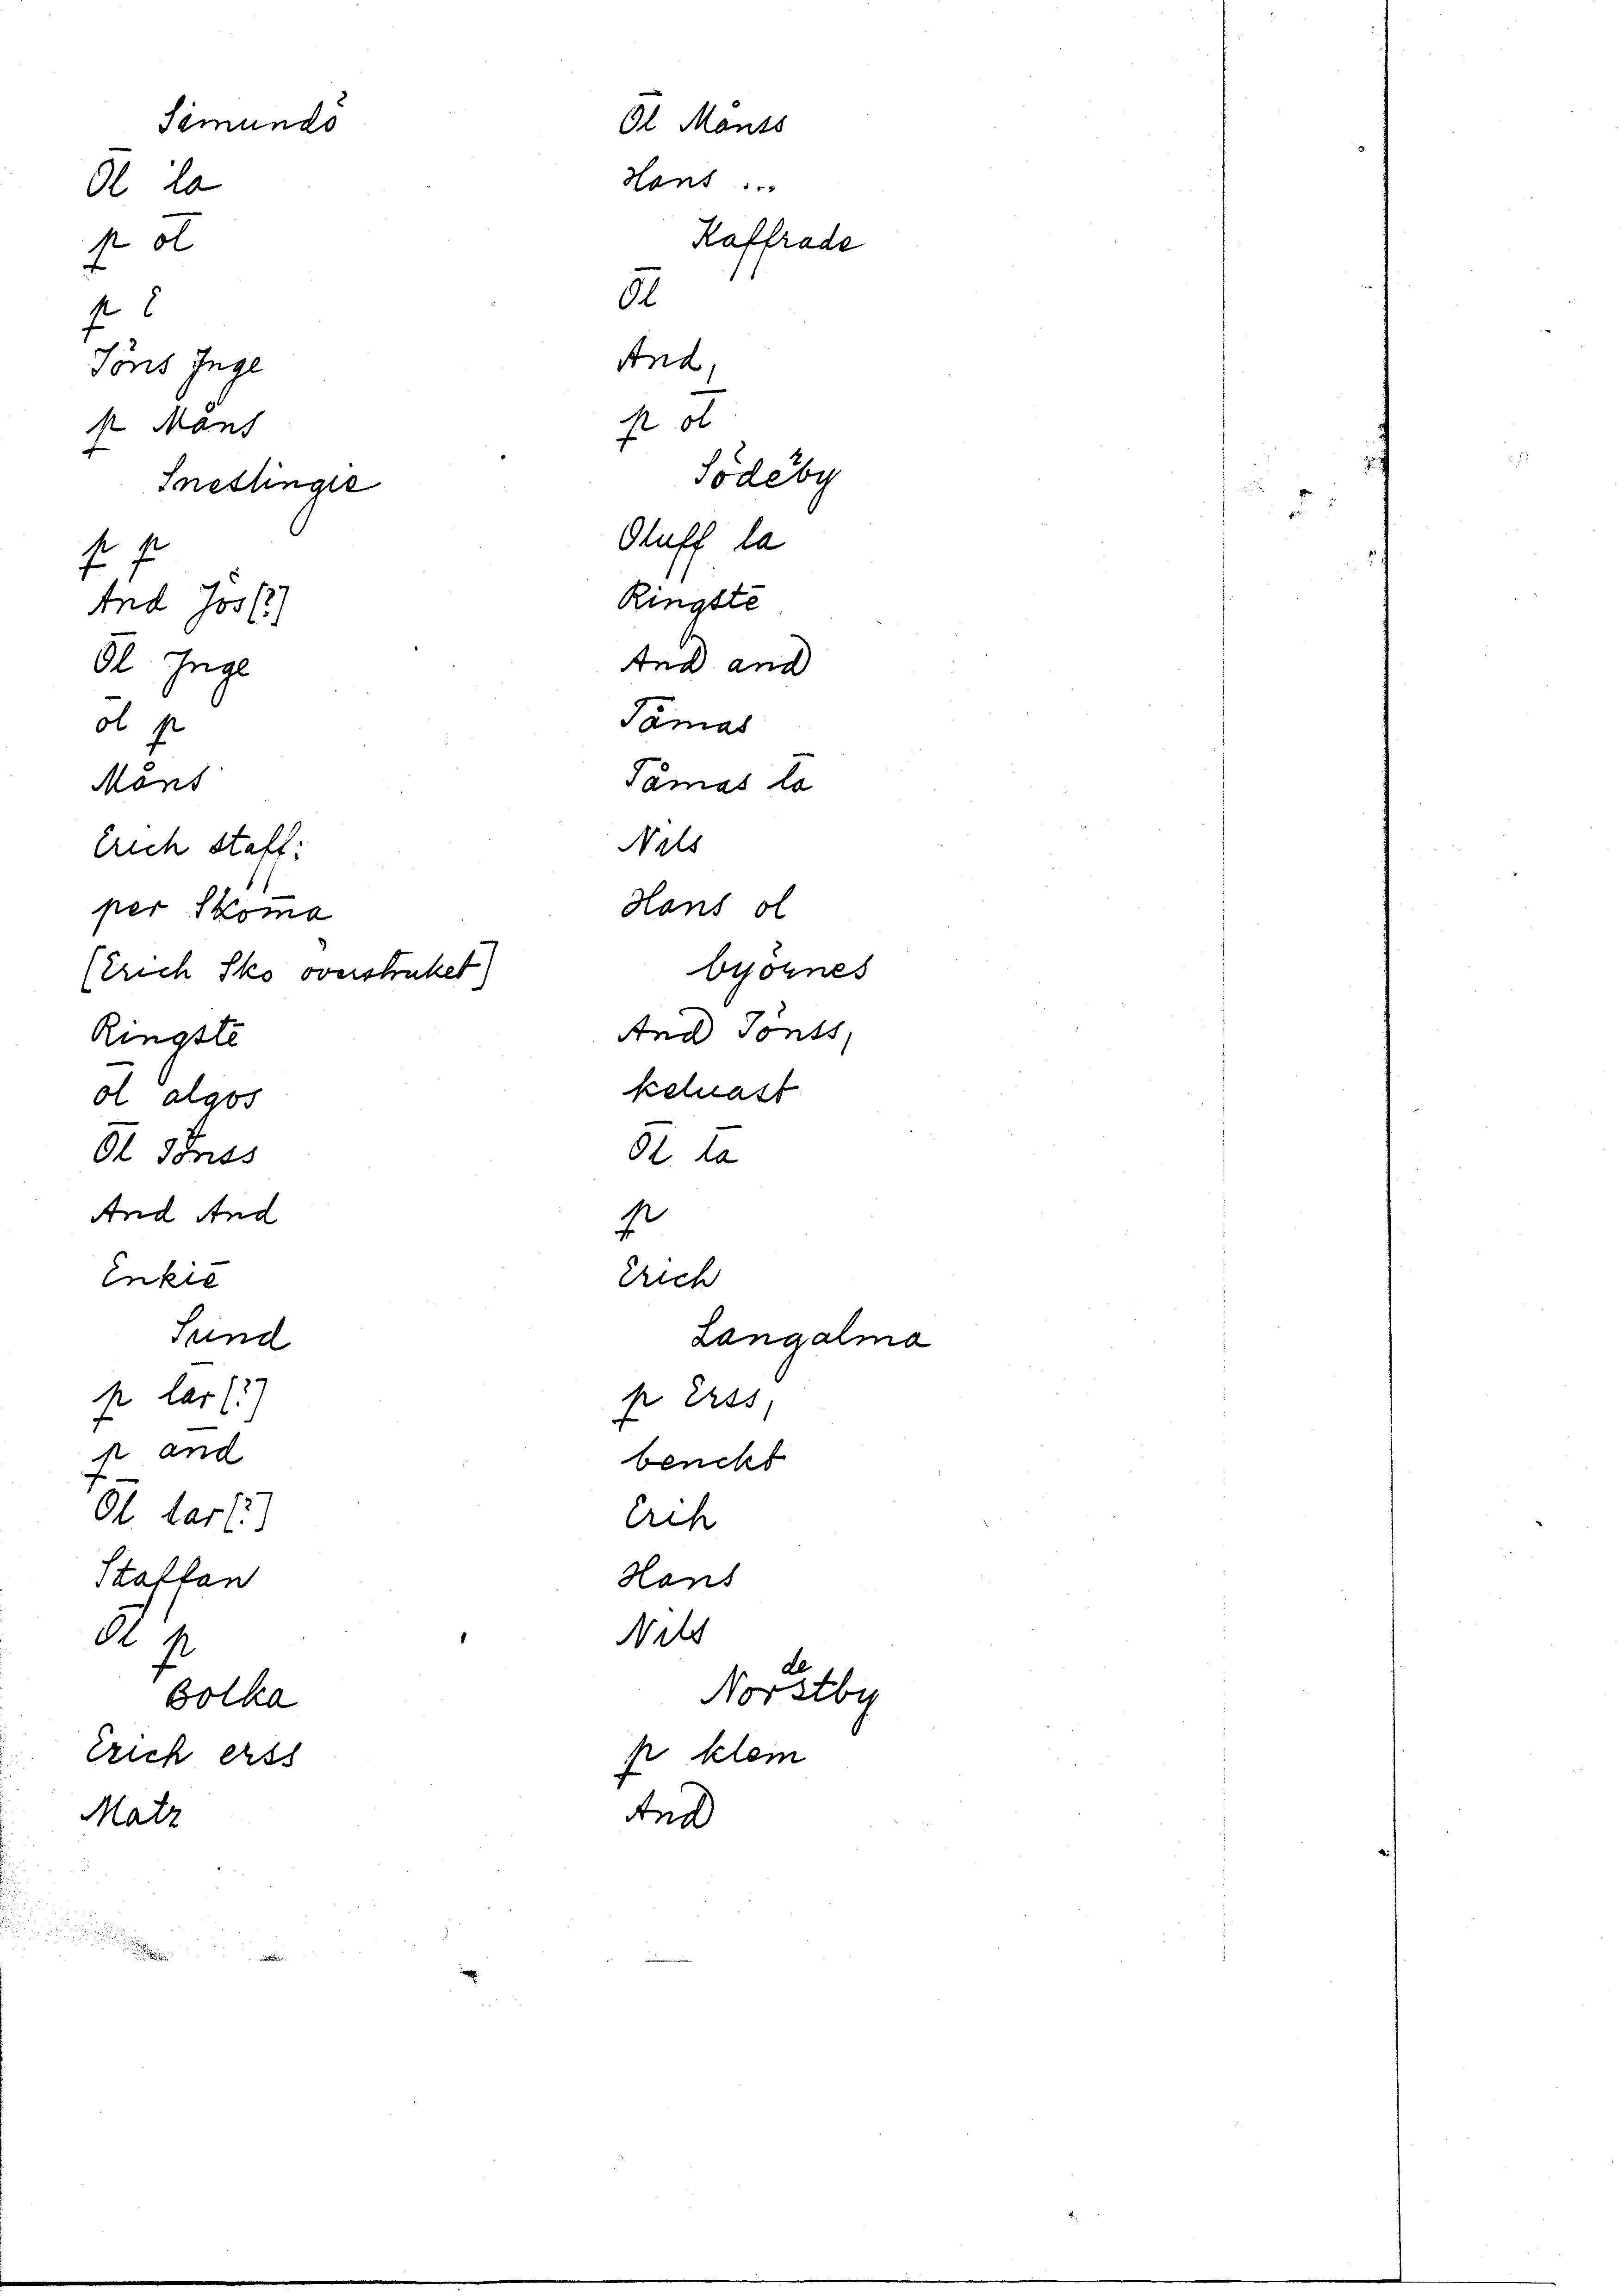 Simundö
Ōl la
p ōl
p E
Jöns Inge
p Måns
Sneslingie
p p
And Jös[?]
Ōl Inge
ōl p
Måns
Erich staff:
per Skōma
[Erich Sko överstruket]
Ringstē
ōl algos
Ōl Jönss
And And
Enkiē
Sund
p lār[?]
p and
Ōl lar[?]
Staffan
Ōl p
Bolka
Erich erss
Matz
Ōl Månss
Hans ...
Kaffrade
Ōl
And,
p ōl
Södeby
Oluff la
Ringstē
And and
Tåmas
Tåmas la
Nils
Hans ol
byörnes
And Jönss,
keluast
Ōl la
p
Erich
Langalma
p Erss,
benckt
Erih
Hans
Nils
de
Norstby
p klem
And